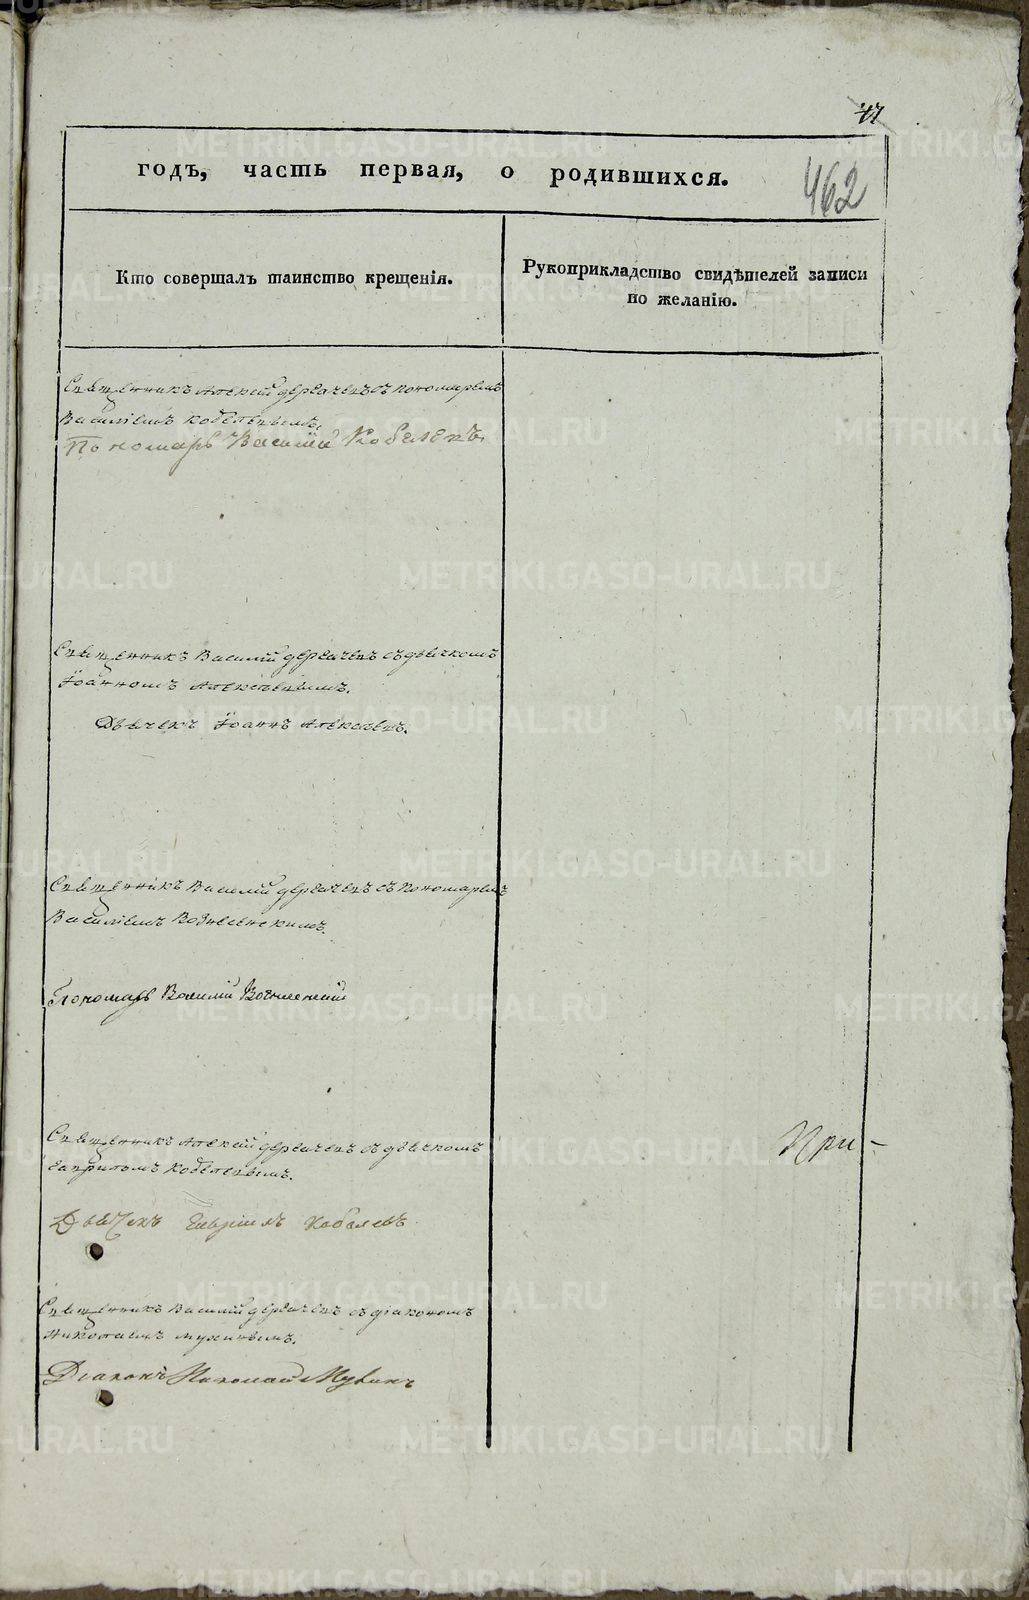 47
462
годъ, часть первая, о родившихся.
Кто совершалъ таинство крещенія.
Рукоприкладство свидѣтелей записи
по желанію.
Священникъ Алексій съ пономаремъ
Василіемъ Кобелевымъ.
Пономарь Василій Кобелевъ.
Священникъ Василій съ дьячкомъ
Іоанномъ Алексѣевымъ.
Дьячекъ Іоаннъ Алексѣевъ.
Священникъ Василій съ пономаремъ
Василіемъ Вознесенскимъ.
Пономарь Василій Вознесенскій
Священникъ Алексій съ дьячкомъ
Гавріиломъ Кобелевымъ.
Дьячекъ Гавріилъ Кобелевъ
При-
Священникъ Василій съ діакономъ
Николаемъ Мухинымъ.
Діаконъ Николай Мухинъ
METRIKI.GASO-URAL.RU